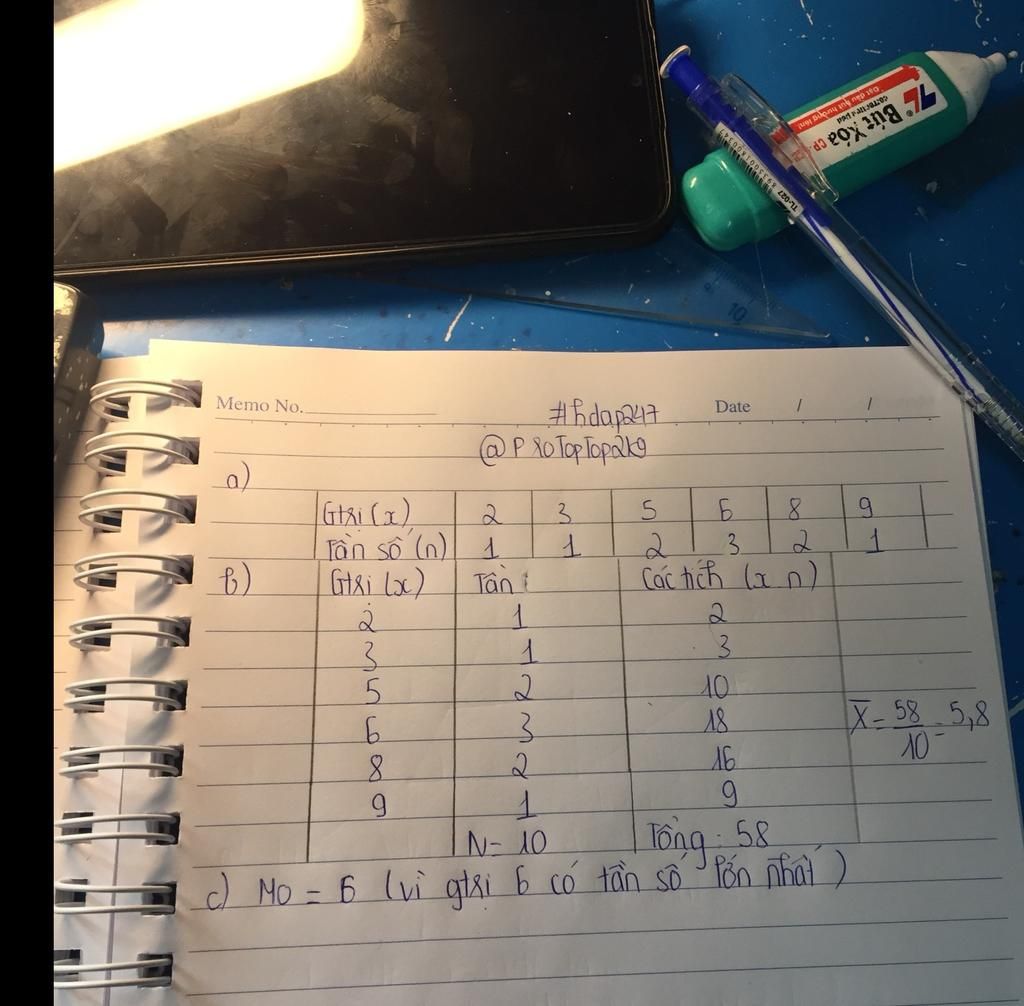 TL Bút Xóa CP
correction pen
Đặt đầu bút hướng lên!
TL-027 8935001800347
10
Memo No.
#hdap247
Date / /
@PROTopTop2k9
a)
Gtrị (x) 2 3 5 6 8 9
Tần số (n) 1 1 2 3 2 1
b) Gtrị (x) Tần Các tích (x n)
2 1 2
3 1 3
5 2 10
6 3 18
8 2 16
9 1 9
X̄ = 58/10 = 5,8
N = 10 Tổng: 58
c) Mo = 6 (vì gtrị 6 có tần số lớn nhất)